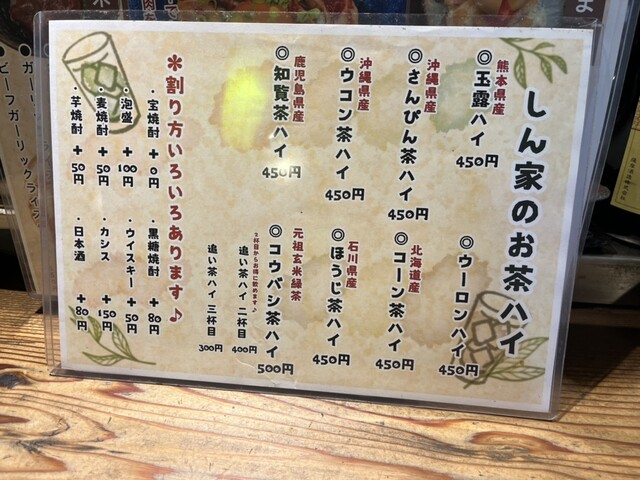 しん家のお茶ハイ
熊本県産
◎玉露ハイ 450円
沖縄県産
◎さんぴん茶ハイ 450円
沖縄県産
◎ウコン茶ハイ 450円
鹿児島県産
◎知覧茶ハイ 450円
◎ウーロンハイ 450円
北海道産
◎コーン茶ハイ 450円
石川県産
◎ほうじ茶ハイ 450円
元祖玄米緑茶
◎コウバシ茶ハイ 500円
2杯目からお得に飲めます♪
追い茶ハイ 二杯目 400円
追い茶ハイ 三杯目 300円
＊割り方いろいろあります♪
・宝焼酎 +0円
・泡盛 +100円
・麦焼酎 +50円
・芋焼酎 +50円
・黒糖焼酎 +80円
・ウイスキー +50円
・カシス +150円
・日本酒 +80円
ビーフガーリックライス